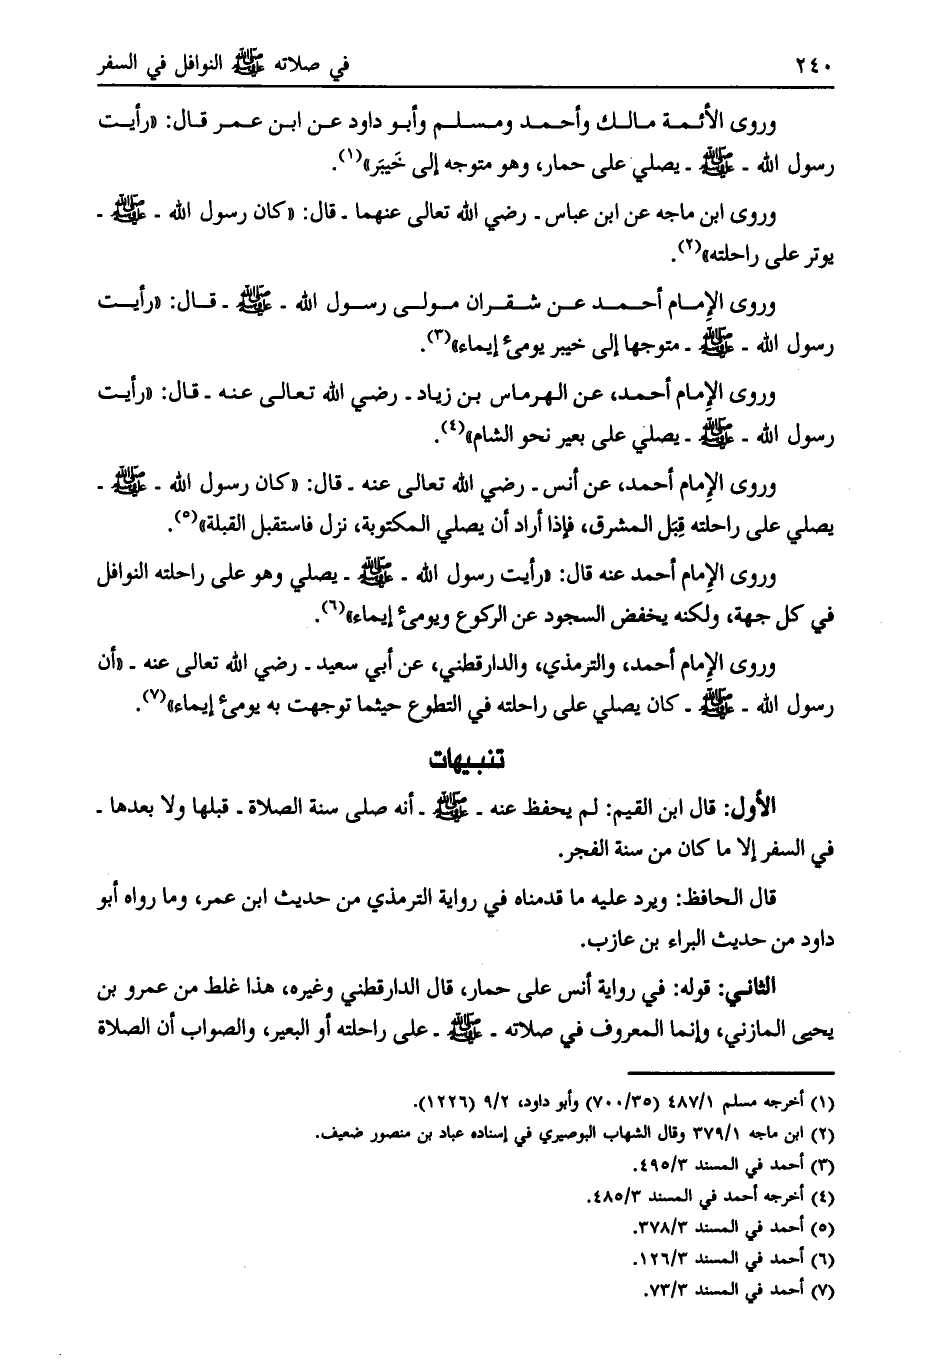 ٢٤٠ في صلاته ﷺ النوافل في السفر
وروى الأئمة مالك وأحمد ومسلم وأبو داود عن ابن عمر قال: «رأيت
رسول الله ـ ﷺ ـ يصلي على حمار، وهو متوجه إلى خَيبَر»(١).
وروى ابن ماجه عن ابن عباس ـ رضي الله تعالى عنهما ـ قال: «كان رسول الله ـ ﷺ ـ
يوتر على راحلته»(٢).
وروى الإِمام أحمد عن شقران مولى رسول الله ـ ﷺ ـ قال: «رأيت
رسول الله ـ ﷺ ـ متوجها إلى خيبر يومئ إيماء»(٣).
وروى الإِمام أحمد، عن الهرماس بن زياد ـ رضي الله تعالى عنه ـ قال: «رأيت
رسول الله ـ ﷺ ـ يصلي على بعير نحو الشام»(٤).
وروى الإِمام أحمد، عن أنس ـ رضي الله تعالى عنه ـ قال: «كان رسول الله ـ ﷺ ـ
يصلي على راحلته قِبَل المشرق، فإذا أراد أن يصلي المكتوبة، نزل فاستقبل القبلة»(٥).
وروى الإِمام أحمد عنه قال: «رأيت رسول الله ـ ﷺ ـ يصلي وهو على راحلته النوافل
في كل جهة، ولكنه يخفض السجود عن الركوع ويومئ إيماء»(٦).
وروى الإِمام أحمد، والترمذي، والدارقطني، عن أبي سعيد ـ رضي الله تعالى عنه ـ «أن
رسول الله ـ ﷺ ـ كان يصلي على راحلته في التطوع حيثما توجهت به يومئ إيماء»(٧).
تنبيهات
الأول: قال ابن القيم: لم يحفظ عنه ـ ﷺ ـ أنه صلى سنة الصلاة ـ قبلها ولا بعدها ـ
في السفر إلا ما كان من سنة الفجر.
قال الحافظ: ويرد عليه ما قدمناه في رواية الترمذي من حديث ابن عمر، وما رواه أبو
داود من حديث البراء بن عازب.
الثاني: قوله: في رواية أنس على حمار، قال الدارقطني وغيره، هذا غلط من عمرو بن
يحيى المازني، وإنما المعروف في صلاته ـ ﷺ ـ على راحلته أو البعير، والصواب أن الصلاة
(١) أخرجه مسلم ٤٨٧/١ (٧٠٠/٣٥) وأبو داود، ٩/٢ (١٢٢٦).
(٢) ابن ماجه ٣٧٩/١ وقال الشهاب البوصيري في إسناده عباد بن منصور ضعيف.
(٣) أحمد في المسند ٤٩٥/٣.
(٤) أخرجه أحمد في المسند ٤٨٥/٣.
(٥) أحمد في المسند ٣٧٨/٣.
(٦) أحمد في المسند ١٢٦/٣.
(٧) أحمد في المسند ٧٣/٣.